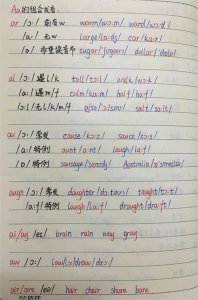 Aa的组合发音:
ar /ɔ:/ 前有w warm/wɔ:m/ ward/wɔ:d/
/a:/ 无w large/la:dʒ/ car/ka:r/
/ə/ 非重读音节 sugar/ˈʃʊgər/ dollar/ˈdɒlə/
al /ɔ:/ 遇l/k tall/tɔ:l/ walk/wɔ:k/
/a:/ 遇m/f calm/ka:m/ half/ha:f/
/ɔ:l/ 无l/k/m/f also/ˈɔ:lsəʊ/ salt/sɔ:lt/
au /ɔ:/ 常发 cause/kɔ:z/ sauce/sɔ:s/
/a:/ 特例 aunt/a:nt/ laugh/la:f/
/ɒ/ 特例 sausage/ˈsɒsɪdʒ/ Australia/ɒˈstreɪlɪə/
augh /ɔ:/ 常发 daughter/ˈdɔ:tər/ taught/tɔ:t/
/a:f/ 特例 laugh/la:f/ draught/dra:ft/
ai/ay /eɪ/ brain rain way gray
aw /ɔ:/ law/lɔ:/ draw/drɔ:/
air/are /eə/ hair chair share bare